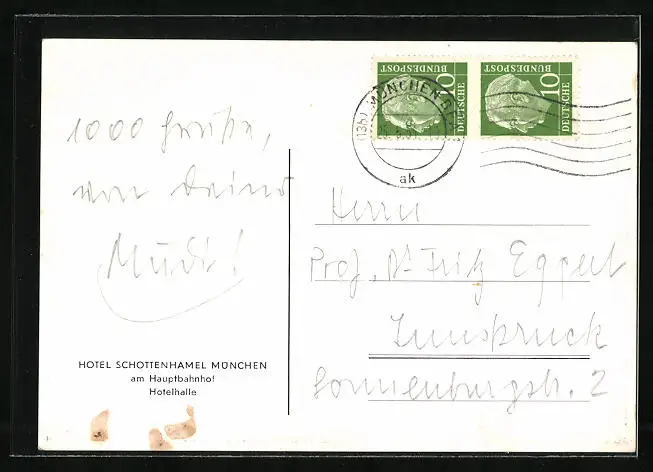 1000 Grüße,
von Deiner
Mudi!
HOTEL SCHOTTENHAMEL MÜNCHEN
am Hauptbahnhof
Hotelhalle
10
DEUTSCHE
BUNDESPOST
10
DEUTSCHE
BUNDESPOST
(13b) MÜNCHEN
ak
Herrn
Prof. Dr Fritz Eggert
Innsbruck
Sonnenburgstr. 2